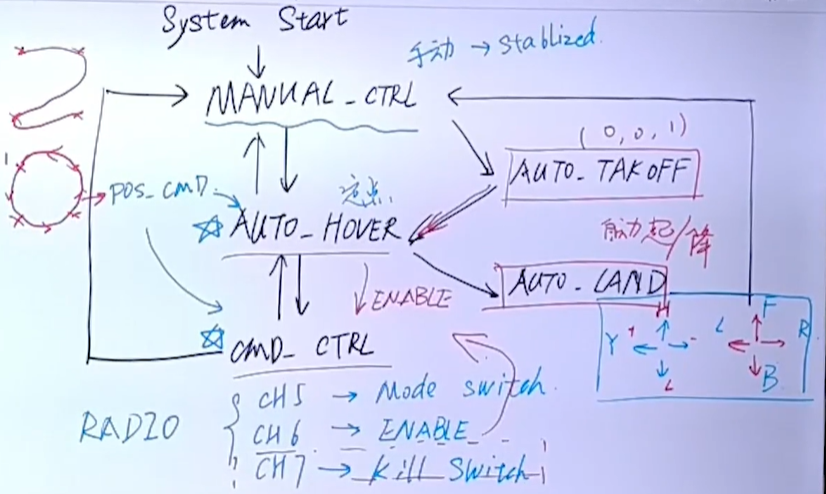 System Start
手动 → stablized.
MANUAL_CTRL
(0,0,1)
AUTO_TAKOFF
POS_CMD
定点
AUTO_HOVER
自动起/降
AUTO_LAND
ENABLE
CMD_CTRL
H
Y + -
L
F
L R
B
RADIO
CH5 → Mode switch
CH6 → ENABLE
CH7 → Kill Switch